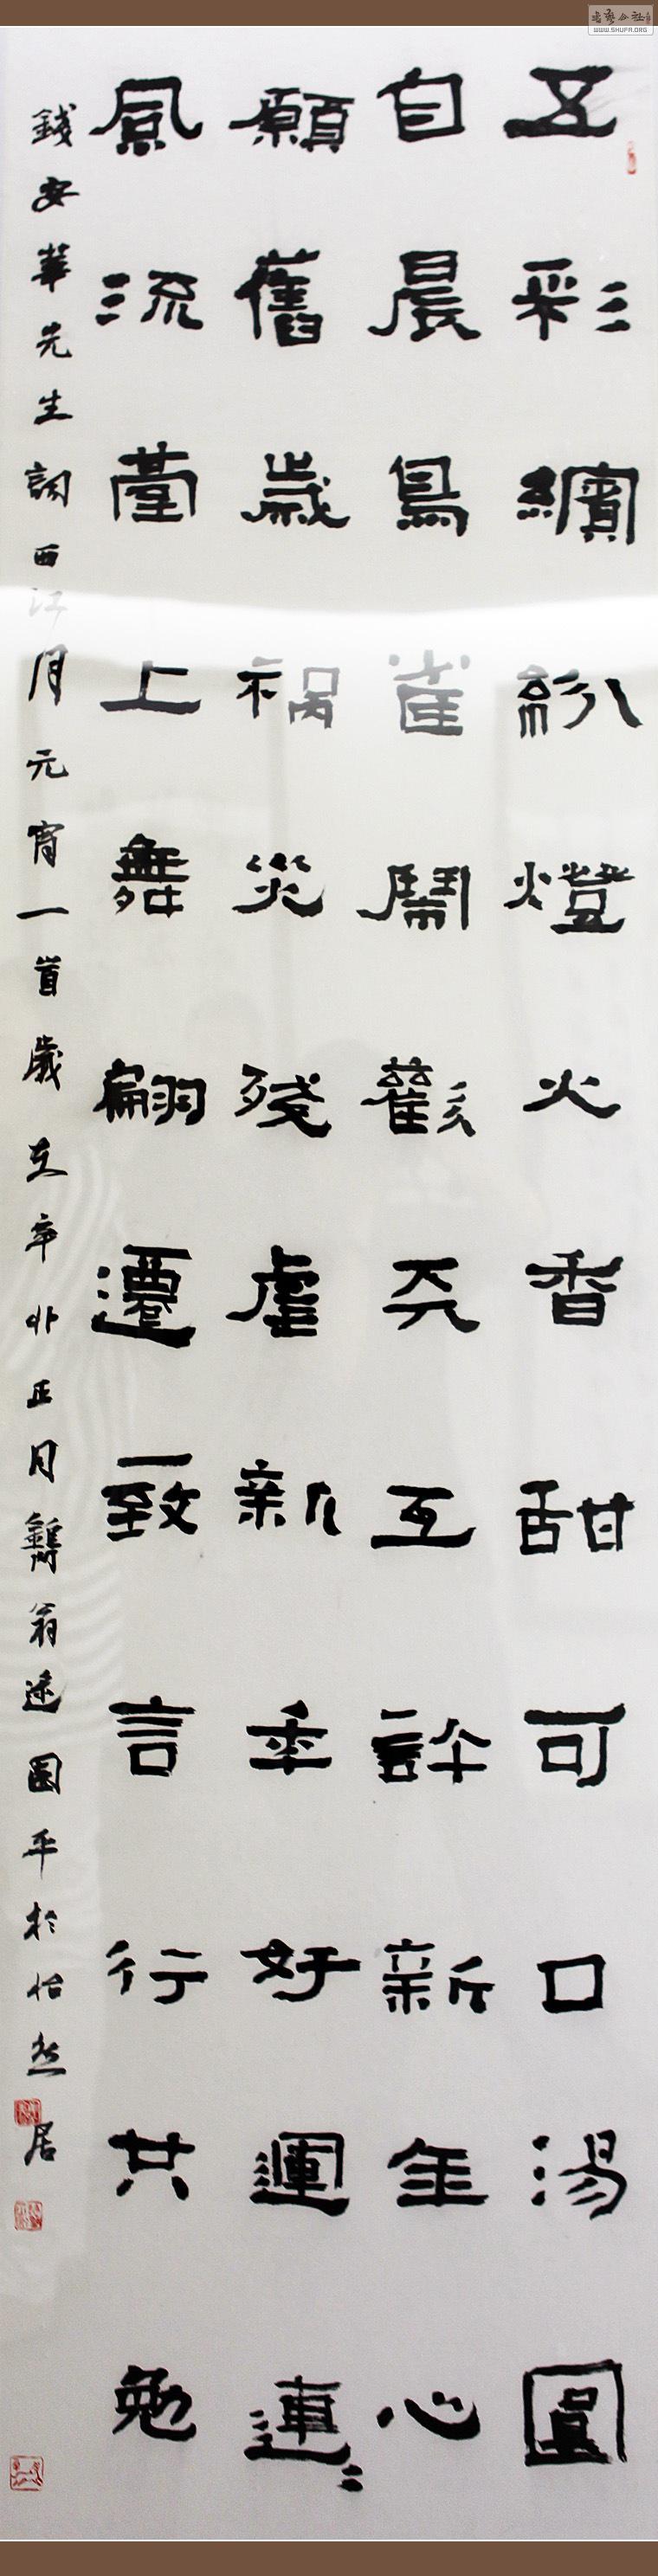 五彩繽紛燈火香甜可口湯圓
自晨鳥雀鬧歡天互許新年心
願舊歲祸災殘虐新年好運連〻
風流臺上舞翩遷一致言行共勉
錢安華先生詞西江月元宵一首歲在辛卯正月鐫翁述國平於怡然居
WWW.SHUFA.ORG